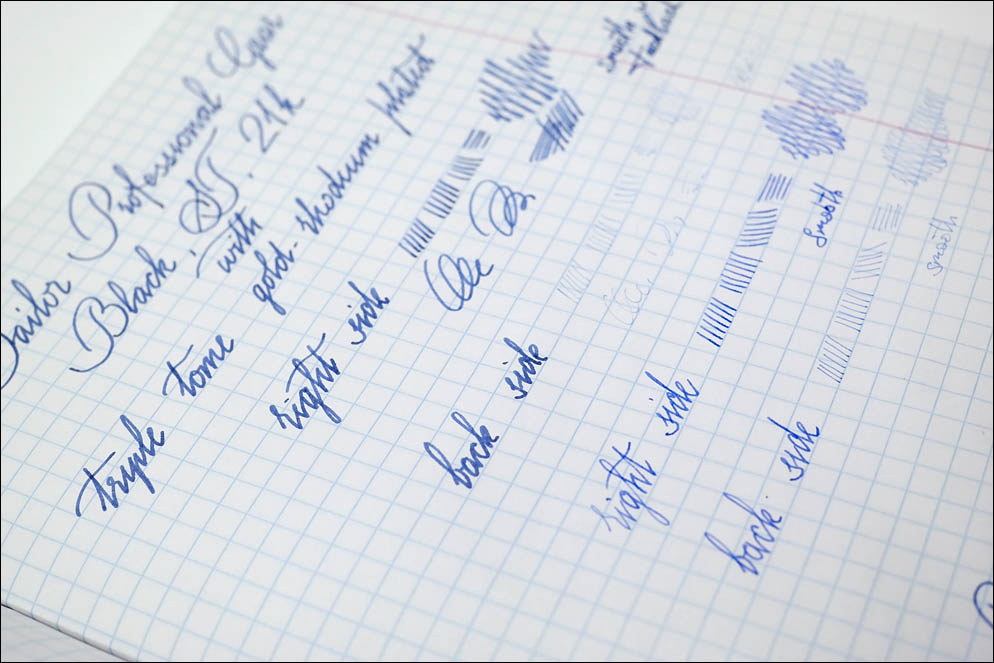 Sailor Professional Gear
Black ST. 21k
with
triple tone gold-rhodium plated
right side
smooth
back side
right side
smooth
back side
smooth